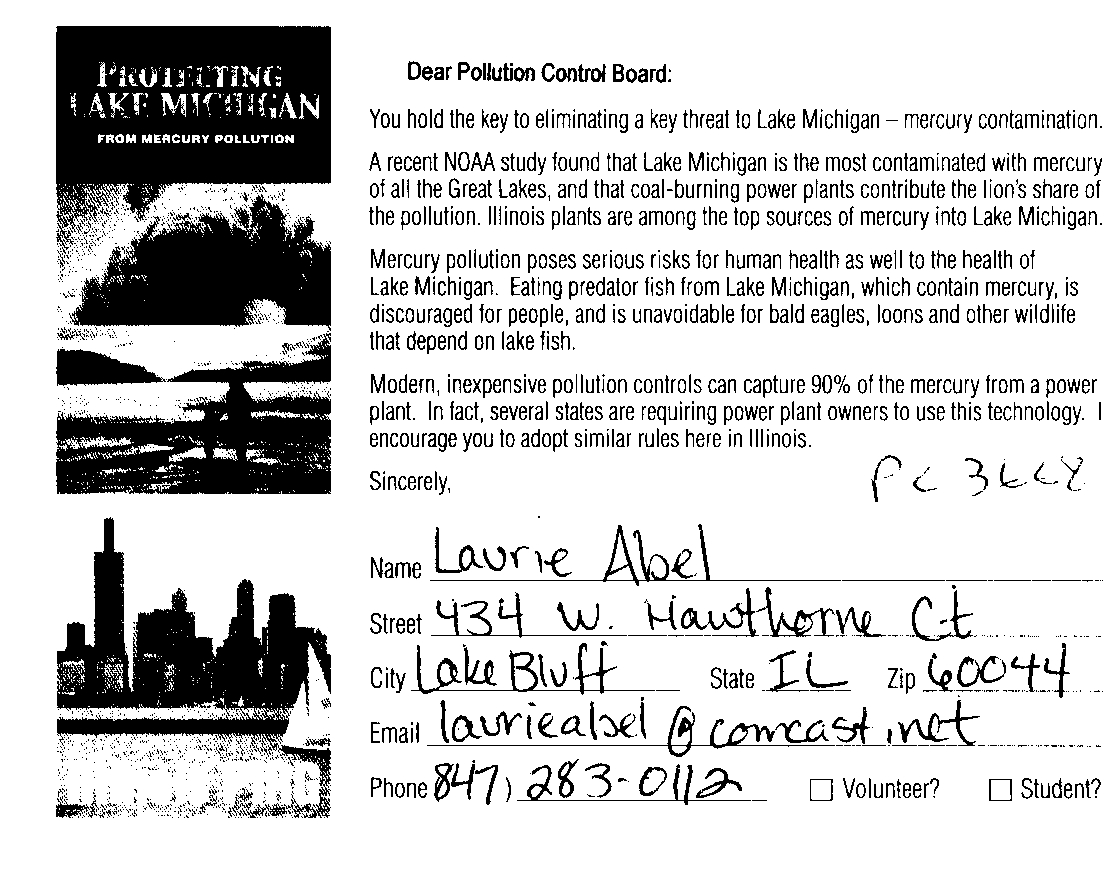 PROTECTING
LAKE MICHIGAN
FROM MERCURY POLLUTION
ILLINOIS PIRG
Dear Pollution Control Board:
You hold the key to eliminating a key threat to Lake Michigan – mercury contamination.
A recent NOAA study found that Lake Michigan is the most contaminated with mercury
of all the Great Lakes, and that coal-burning power plants contribute the lion's share of
the pollution. Illinois plants are among the top sources of mercury into Lake Michigan.
Mercury pollution poses serious risks for human health as well to the health of
Lake Michigan. Eating predator fish from Lake Michigan, which contain mercury, is
discouraged for people, and is unavoidable for bald eagles, loons and other wildlife
that depend on lake fish.
Modern, inexpensive pollution controls can capture 90% of the mercury from a power
plant. In fact, several states are requiring power plant owners to use this technology. I
encourage you to adopt similar rules here in Illinois.
Sincerely,
PC
Name Laurie Abel
Street 434 W. Hawthorne Ct
City Lake Bluff State IL Zip 60044
Email laurieabel@comcast.net
Phone 847) 283-0112 Volunteer? Student?